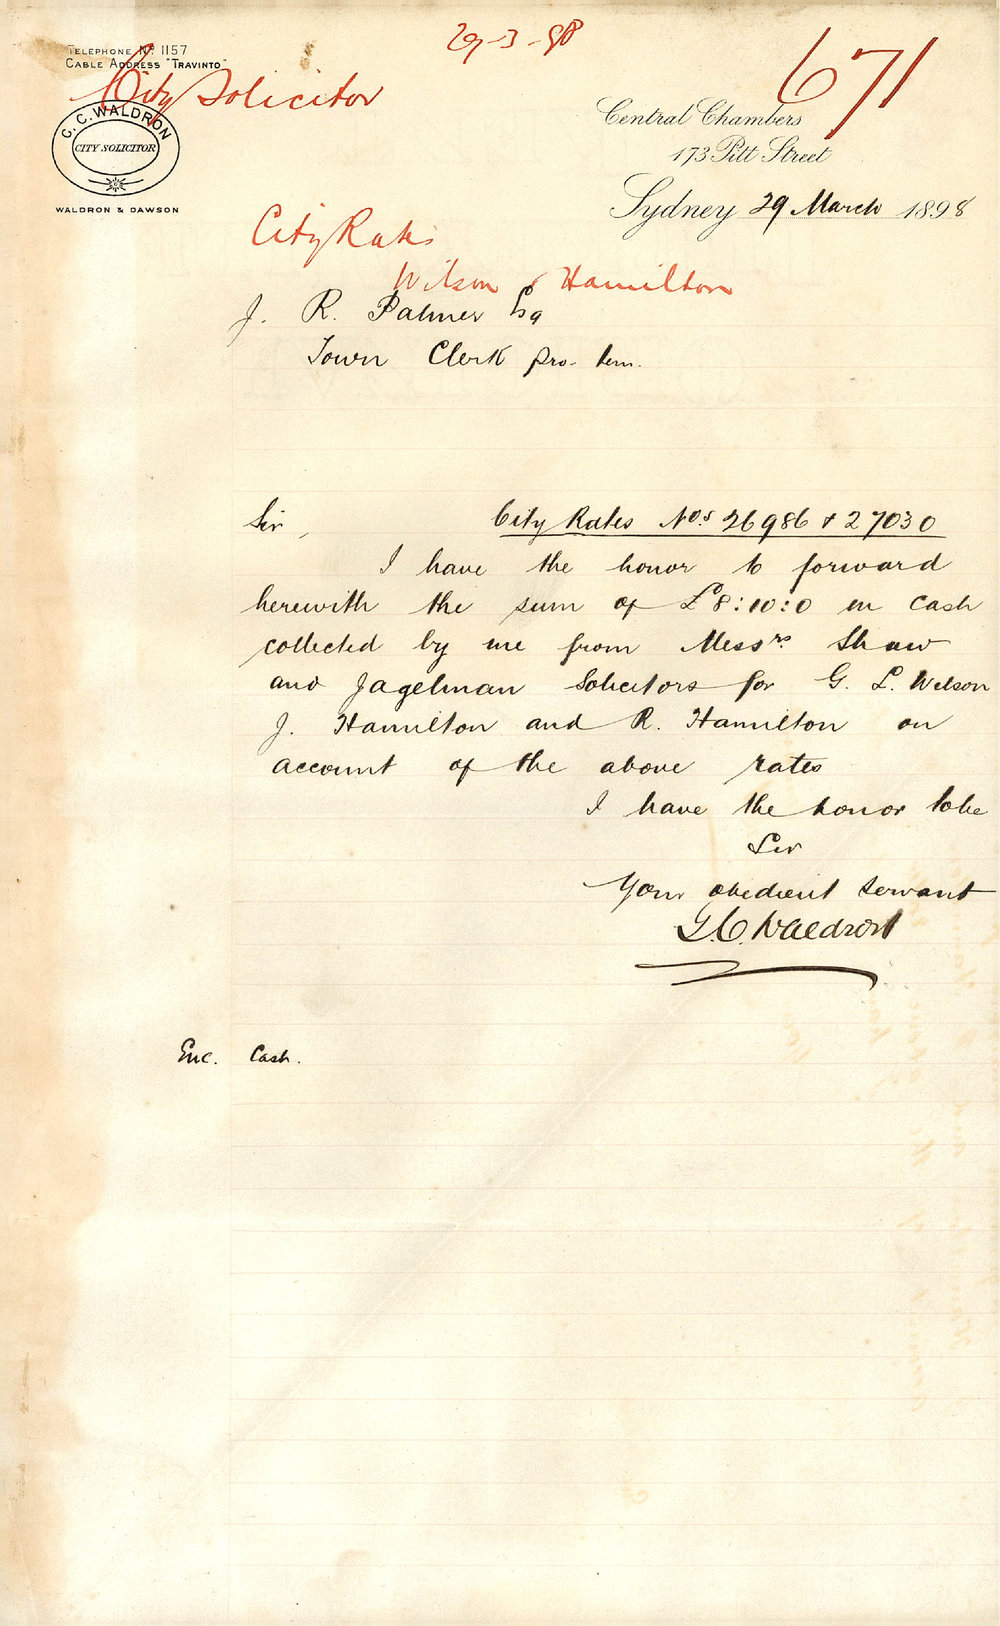 29-3-98
671
TELEPHONE No. 1157
CABLE ADDRESS "TRAVINTO"
City Solicitor
G. C. WALDRON
CITY SOLICITOR
WALDRON & DAWSON
Central Chambers
173 Pitt Street
Sydney 29 March 1898
City Rates
Wilson & Hamilton
J. R. Palmer Esq
Town Clerk pro. tem.
Sir,
City Rates Nos 26986 & 27030
I have the honor to forward
herewith the sum of £8:10:0 in cash
collected by me from Messrs. Shaw
and Jagelman Solicitors for G. L. Wilson
J. Hamilton and R. Hamilton on
account of the above rates
I have the honor to be
Sir
Your obedient servant
G. C. Waldron
Enc. Cash.